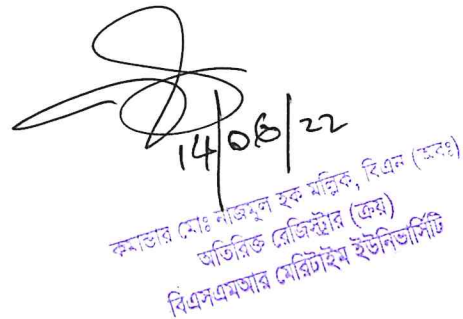 14/06/22
কমান্ডার মোঃ নাজমুল হক মল্লিক, বিএন (অবঃ)
অতিরিক্ত রেজিস্ট্রার (ক্রয়)
বিএসএমআর মেরিটাইম ইউনিভার্সিটি